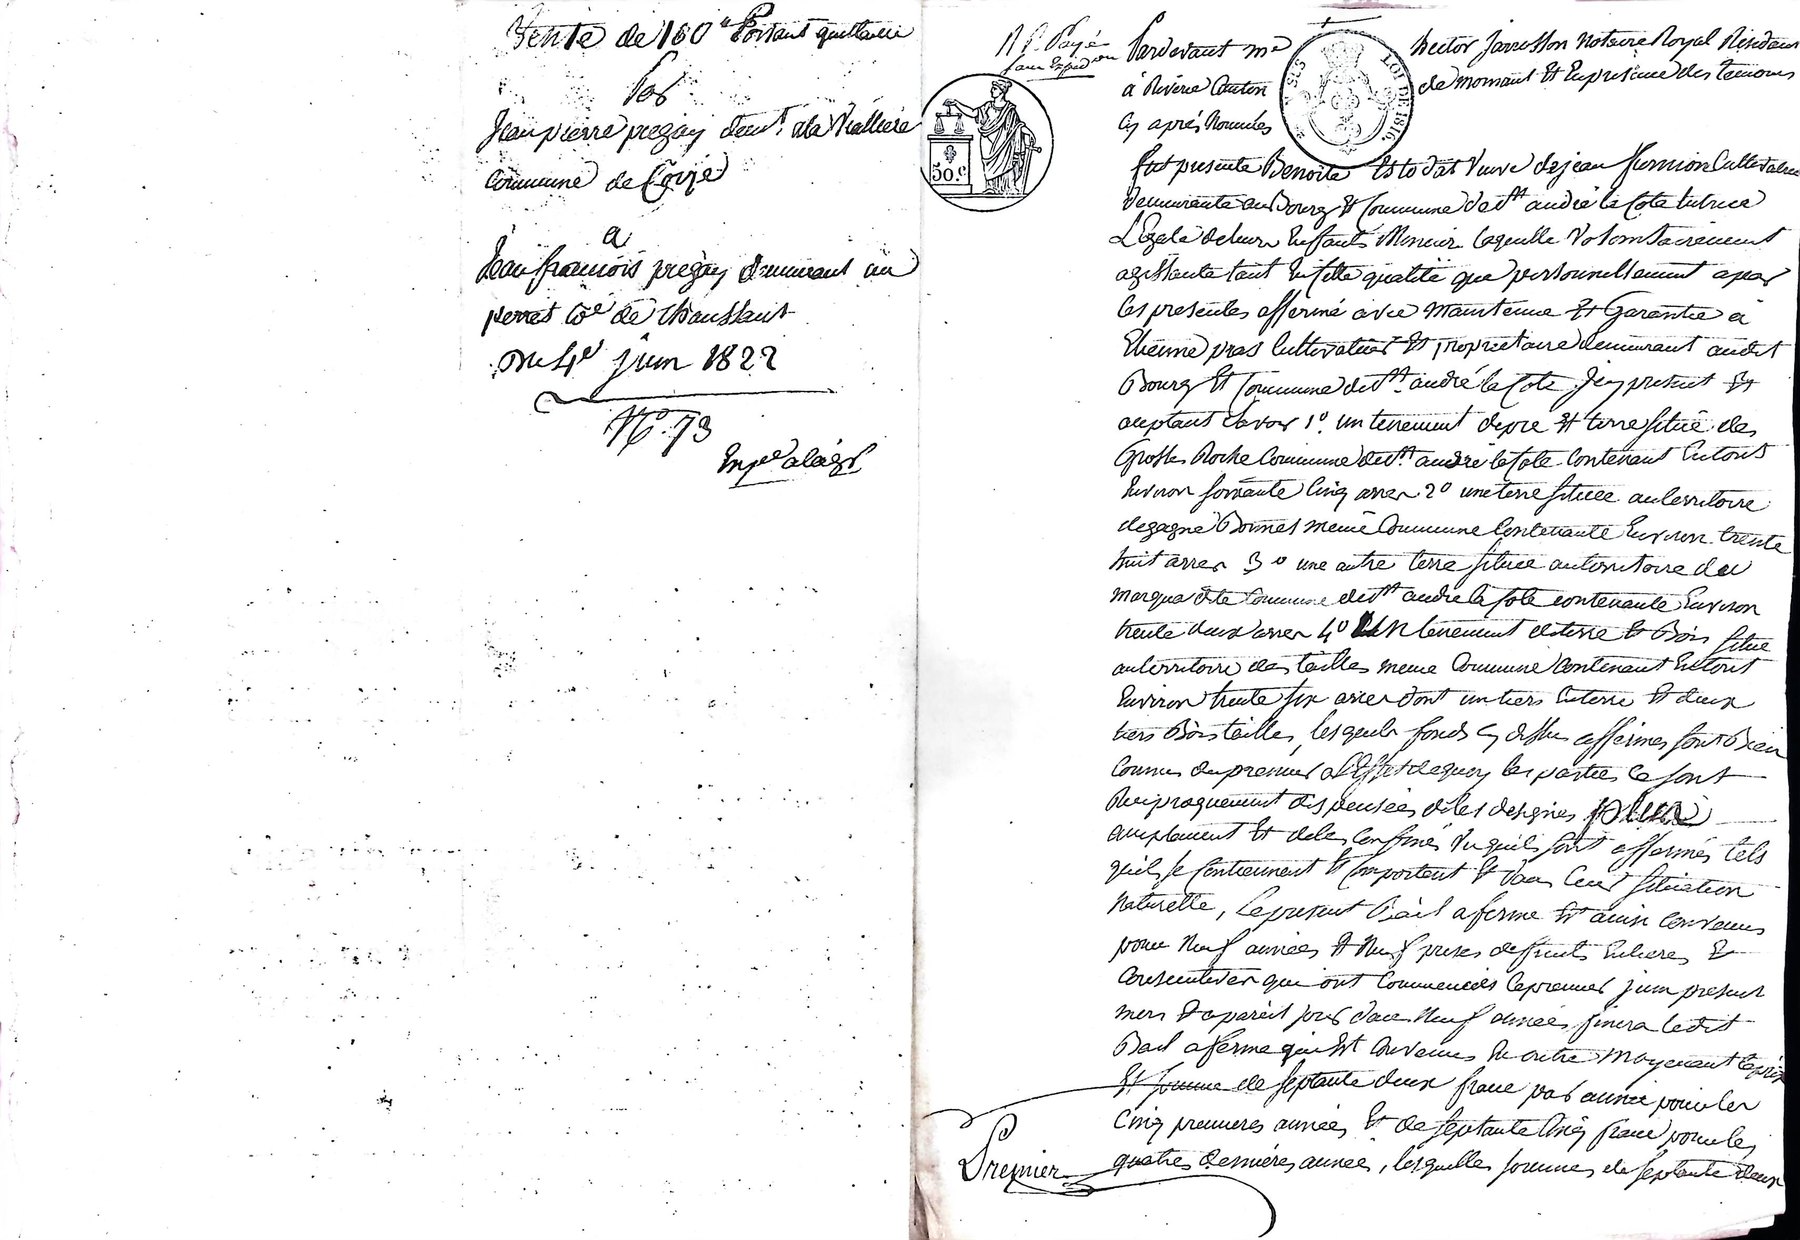 Vente de 160# Portant quittance
Par
Jean pierre pregay demt. ala Vialliere
Commune de Coize
a
Jean francois pregay demeurant au
perret Coe de Chaussant
Du 4e juin 1822
No. 73
R P. Payé
Pardevant me hector Jarrosson Notaire Royal Résidant
à Riverie Canton de mornant Et En présence des temoins
Cy après Nommés
LOI DE 1816
50.c
fut presente Benoite veuve de jean Cultivateur
demeurante au Bourg Et Commune de st andré la Cote tutrice
LEgale de leurs Enffants Mineur laquelle Volontairement
agissante tant En cette qualité que personnellement a par
les presentes affermé avec Maintenue Et Garantie à
Etienne pras Cultivateur Et proprietaire demeurant audit
Bourg Et Commune de st. andré la Cote Jcy present Et
aceptant Savoir 1o. un tenement de pré Et terre situé des
Grosses Roche Commune de st. andré la Cote Contenant En tout
Environ soixante Cinq arres 2o une terre Située au territoire
de gagne Bonnes meme Commune Contenante Environ trente
huit arres 3o une autre terre située au territoire de
marqua dte Commune de st andré la Cote contenante Environ
trente deux arres 4o UN tenement de terre Et Bois Situé
au territoire des tailles meme Commune Contenant En tout
Environ trente six arres dont un tiers En terre Et deux
tiers Bois tailles, lesquels fonds Cy dessus affermés sont Bien
Connus du preneur a LEffet de quoy les parties Ce sont
Reciproquement dispensées de les designés plus
amplement Et de les Confinés Vu quils sont affermés tels
quils Se Contiennent Et Comportent Et dans Leur Situation
Naturelle, Le present Bail a ferme Est ainsi Convenus
pour Neuf années Et Neuf prises de fruits Entieres Et
Consecutives qui ont Commencées le premier juin present
mois Et apareil jour dans Neuf années finira le dit
Bail a ferme qui Est Convenus En outre Moyenant le prix
Et Somme de Septante deux franc par année pour les
Cinq premieres années Et de Septante Cinq franc pour les
quatres dernières année, lesquelles sommes de Septante deux
Premier